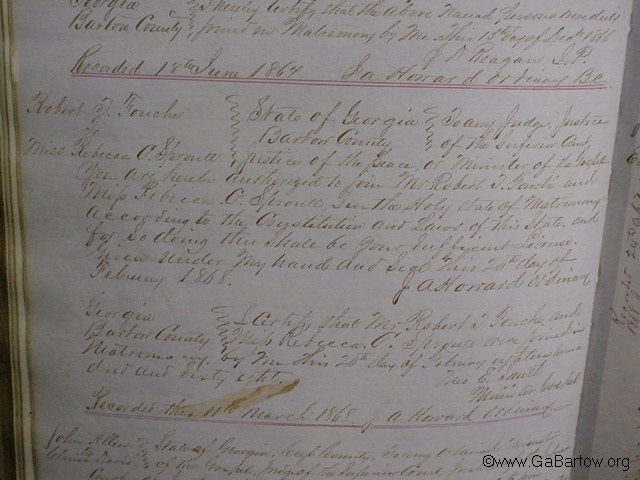 Georgia I hereby Certify that the above Named Persons were duly
Bartow County joined in Matrimony by Me this 13th Day of
J D Reagan J.P.
Recorded 18th June 1867 J A Howard Ordinary B.C.
Robert T. Fouche State of Georgia To any Judge, Justice
To Bartow County of the Inferior Court
Miss Rebecca C. Sproull Justice of the Peace, or Minister of the Gospel
You are hereby authorized to join Mr Robert T. Fouche and
Miss Rebecca C. Sproull in the Holy State of Matrimony
according to the Constitution and Laws of this State and
for so doing this shall be your Sufficient License.
Given under My hand and Seal This 20th day of
February 1868. J A Howard Ordinary
Georgia I Certify that Mr Robert T Fouche and
Bartow County Miss Rebecca C. Sproull were joined in
Matrimony by Me This 20th day of February eighteen hun
dred and Sixty eight
Theo E. Smith
Minister Gospel
Recorded this 11th March 1868. J A Howard Ordinary
John Allen State of Georgia, Cass County, To any ordained Minister
Davis of the Gospel, Judge of the Superior Court,
©www.GaBartow.org